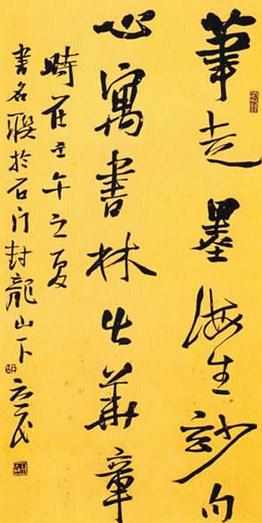 筆走墨海生妙句
心寓書林出華章
時在壬午之夏
書名聯於石门封龍山下